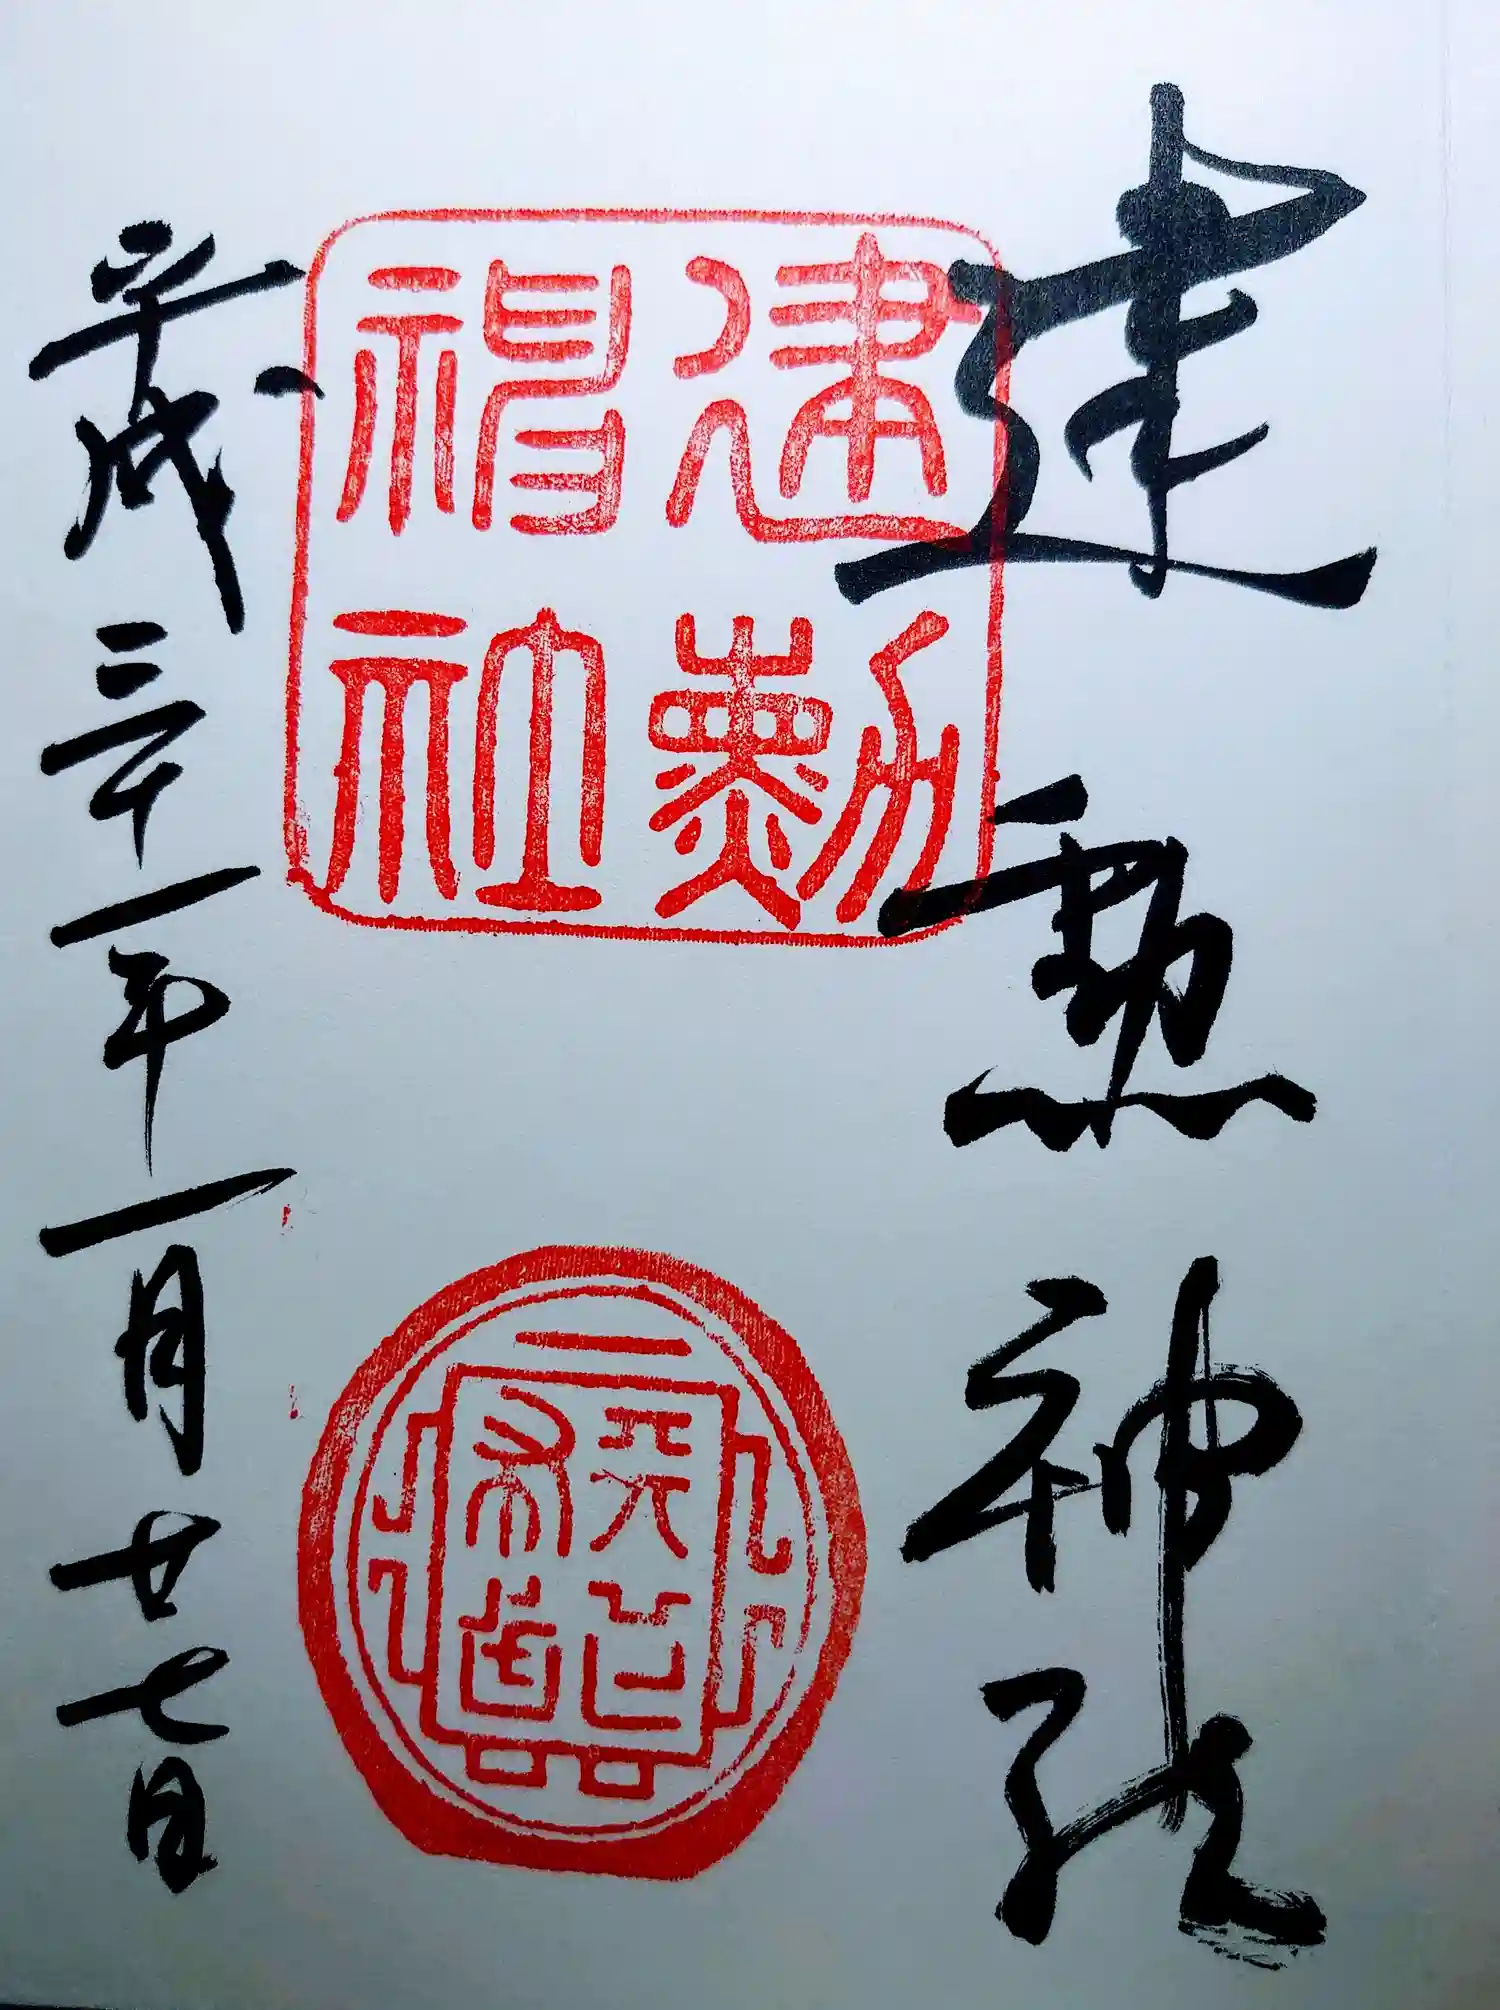 建勲神社
建勲神社
平成三十一年一月廿七日